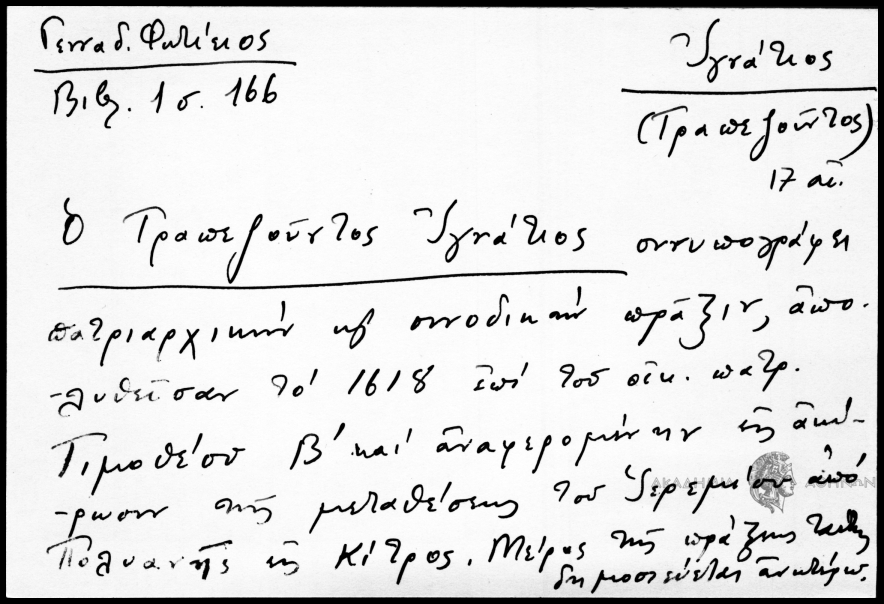 Γενναδ. Φωτίειος
Βιβλ. 1 σ. 166
Ἰγνάτιος
(Τραπεζοῦντος)
17 αἰ.
Ὁ Τραπεζοῦντος Ἰγνάτιος συνυπογράφει
πατριαρχικὴν καὶ συνοδικὴν πρᾶξιν, ἀπο-
-λυθεῖσαν τὸ 1618 ἐπὶ τοῦ οἰκ. πατρ.
Τιμοθέου Β' καὶ ἀναφερομένην εἰς ἀκύ-
-ρωσιν τῆς μεταθέσεως τοῦ Ἱερεμίου ἀπὸ
Πολυανῆς εἰς Κίτρος. Μέρος τῆς πράξεως ταύτης
δημοσιεύεται ἀνωτέρω.
ΑΚΑΔΗΜΙΑ ΑΘΗΝΩΝ